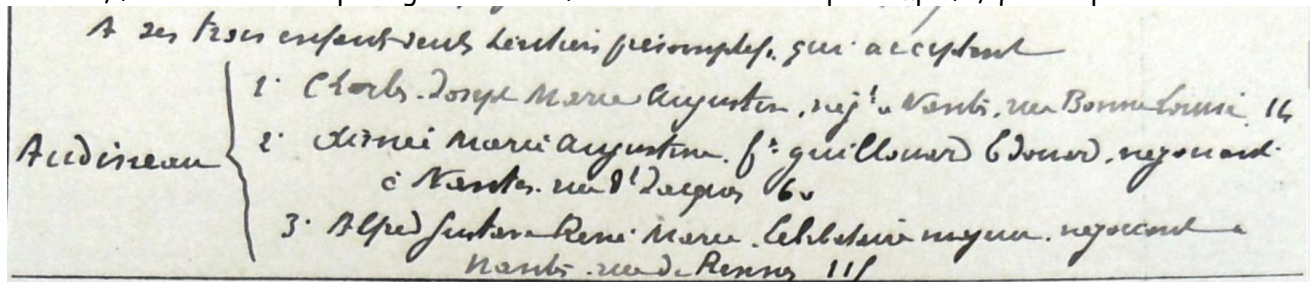 A ses trois enfants seuls héritiers présomptifs, qui acceptent
1. Charles Joseph Marie Augustin, négt à Nantes, rue Bonne Louise, 14
Audineau
2. Marie Augustine, fe Guillouard Edouard, négociant
à Nantes rue St Jacques 60
3. Alfred Gustave René Marie, Célibataire majeur, négociant à
Nantes, rue de Rennes 115